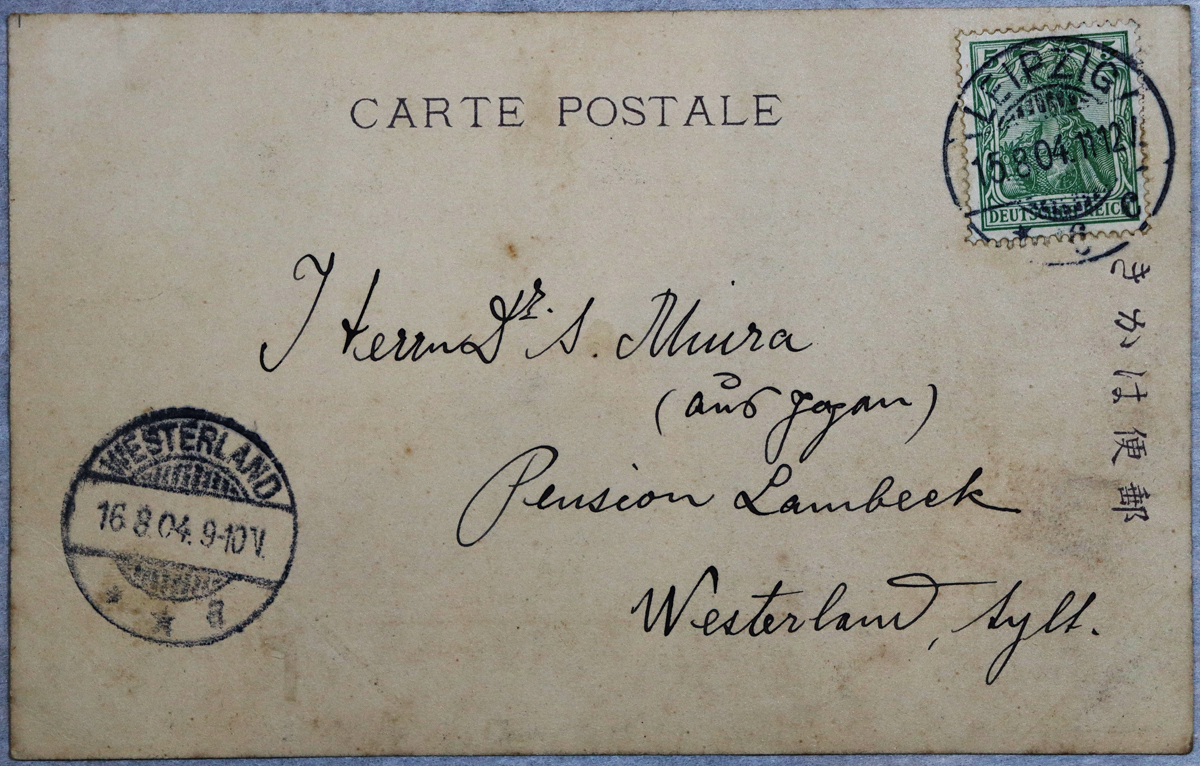 CARTE POSTALE
5 5
DEUTSCHES REICH
LEIPZIG
15.8.04.11-12V.
* 6 c
きかは便郵
Herrn Dr. S. Miura
(aus Japan)
Pension Lambeck
Westerland, Sylt.
WESTERLAND
16.8.04.9-10V.
* * a